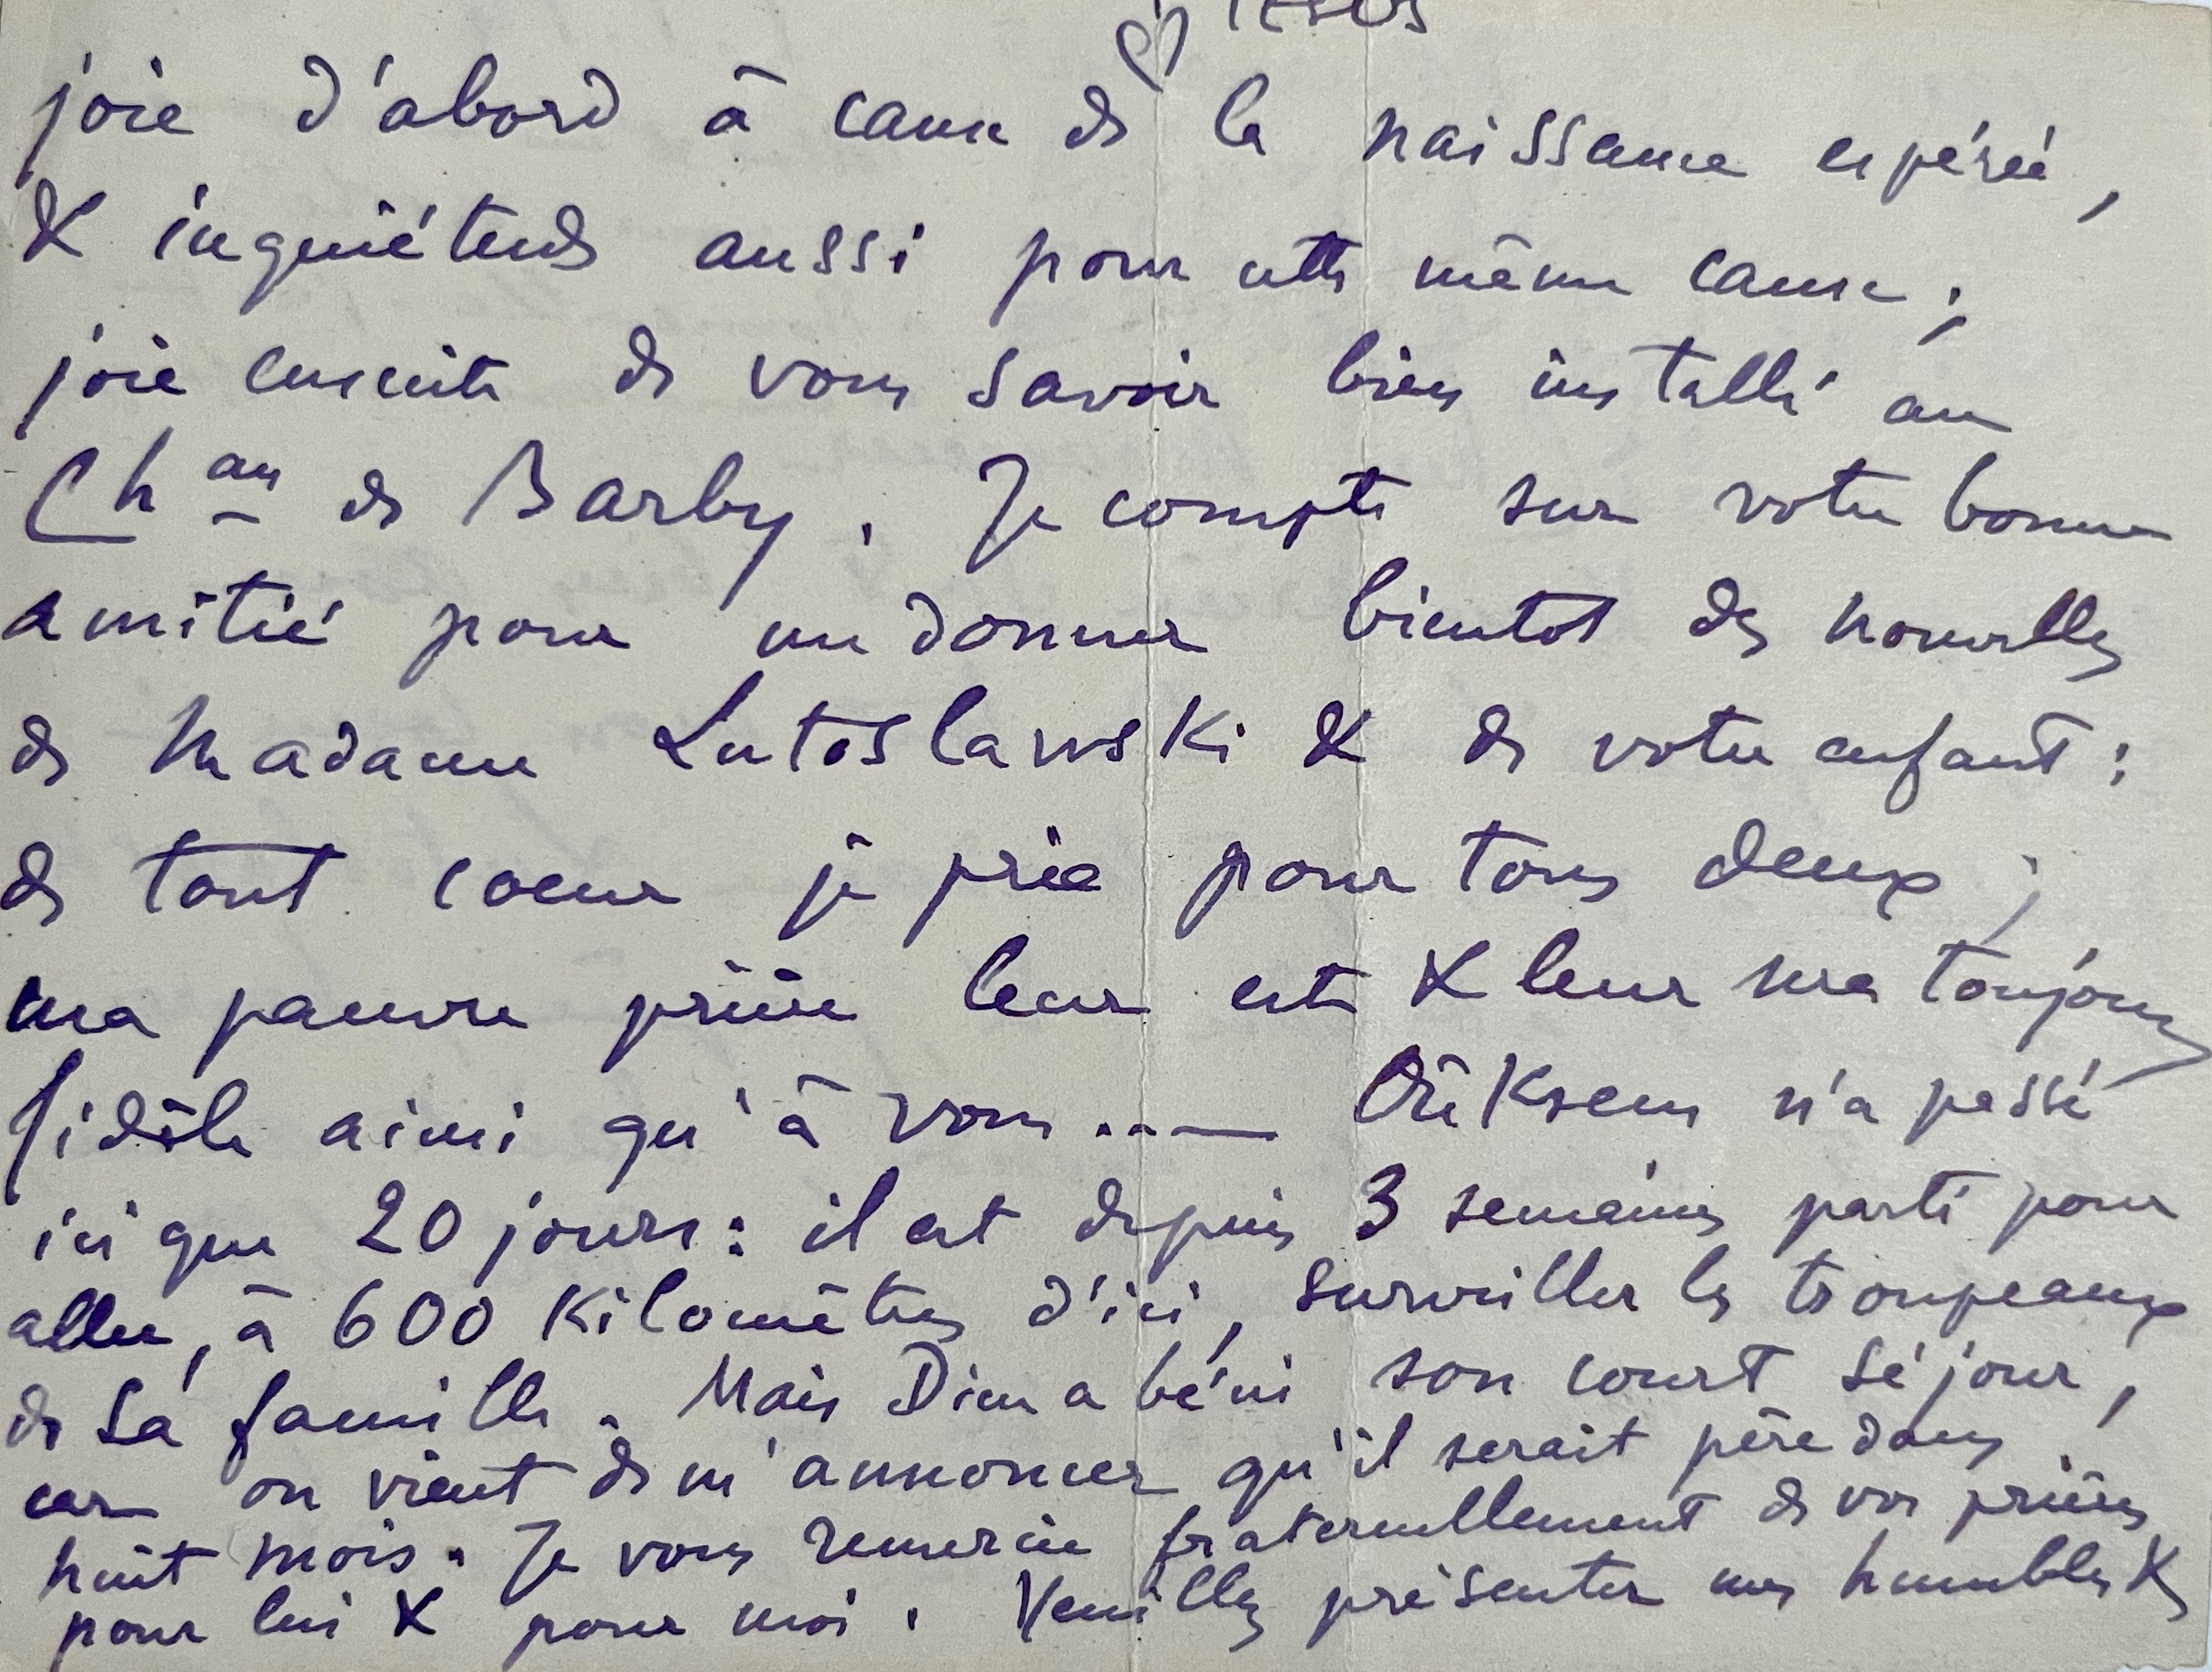 JESUS
joie d'abord à cause de la naissance espérée,
& inquiétude aussi pour cette même cause ;
joie ensuite de vous savoir bien installé au
Chau de Barby. Je compte sur votre bonne
amitié pour me donner bientôt des nouvelles
de Madame Lutoslawski & de votre enfant :
de tout coeur je prie pour tous deux ;
ma pauvre prière leur est & leur sera toujours
fidèle ainsi qu'à vous ... — Oüksem n'a passé
ici que 20 jours : il est depuis 3 semaines parti pour
aller, à 600 kilomètres d'ici, surveiller les troupeaux
de sa famille. Mais Dieu a béni son court séjour,
car on vient de m'annoncer qu'il serait père dans
huit mois. Je vous remercie fraternellement de vos prières
pour lui & pour moi. Veuillez présenter mes humbles &